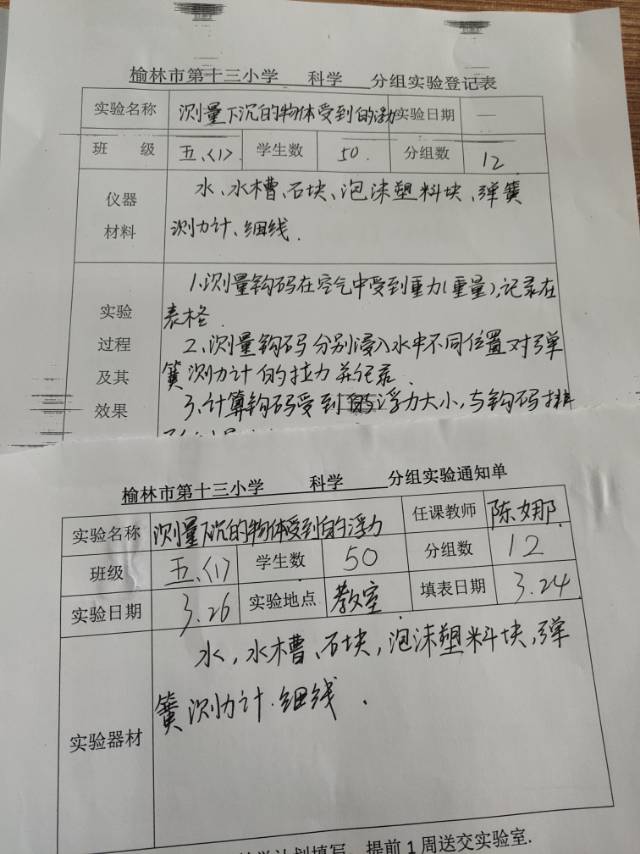 榆林市第十三小学 科学 分组实验登记表
实验名称 测量下沉的物体受到的浮 实验日期 一
班 级 五、〈1〉 学生数 50. 分组数 12
仪器 材料 水、水槽、石块、泡沫塑料块、弹簧
测力计、细线.
实验 过程 及其 效果 1.测量钩码在空气中受到重力(重量),记录在
表格.
2.测量钩码分别浸入水中不同位置对弹
簧测力计的拉力并记录.
3.计算钩码受到的浮力大小,与钩码排
榆林市第十三小学 科学 分组实验通知单
实验名称 测量下沉的物体受到的浮力 任课教师 陈娜
班级 五、〈1〉 学生数 50 分组数 12
实验日期 3.26 实验地点 教室 填表日期 3.24
实验器材 水,水槽、石块,泡沫塑料块,弹
簧测力计.细线.
计划填写,提前1周送交实验室.